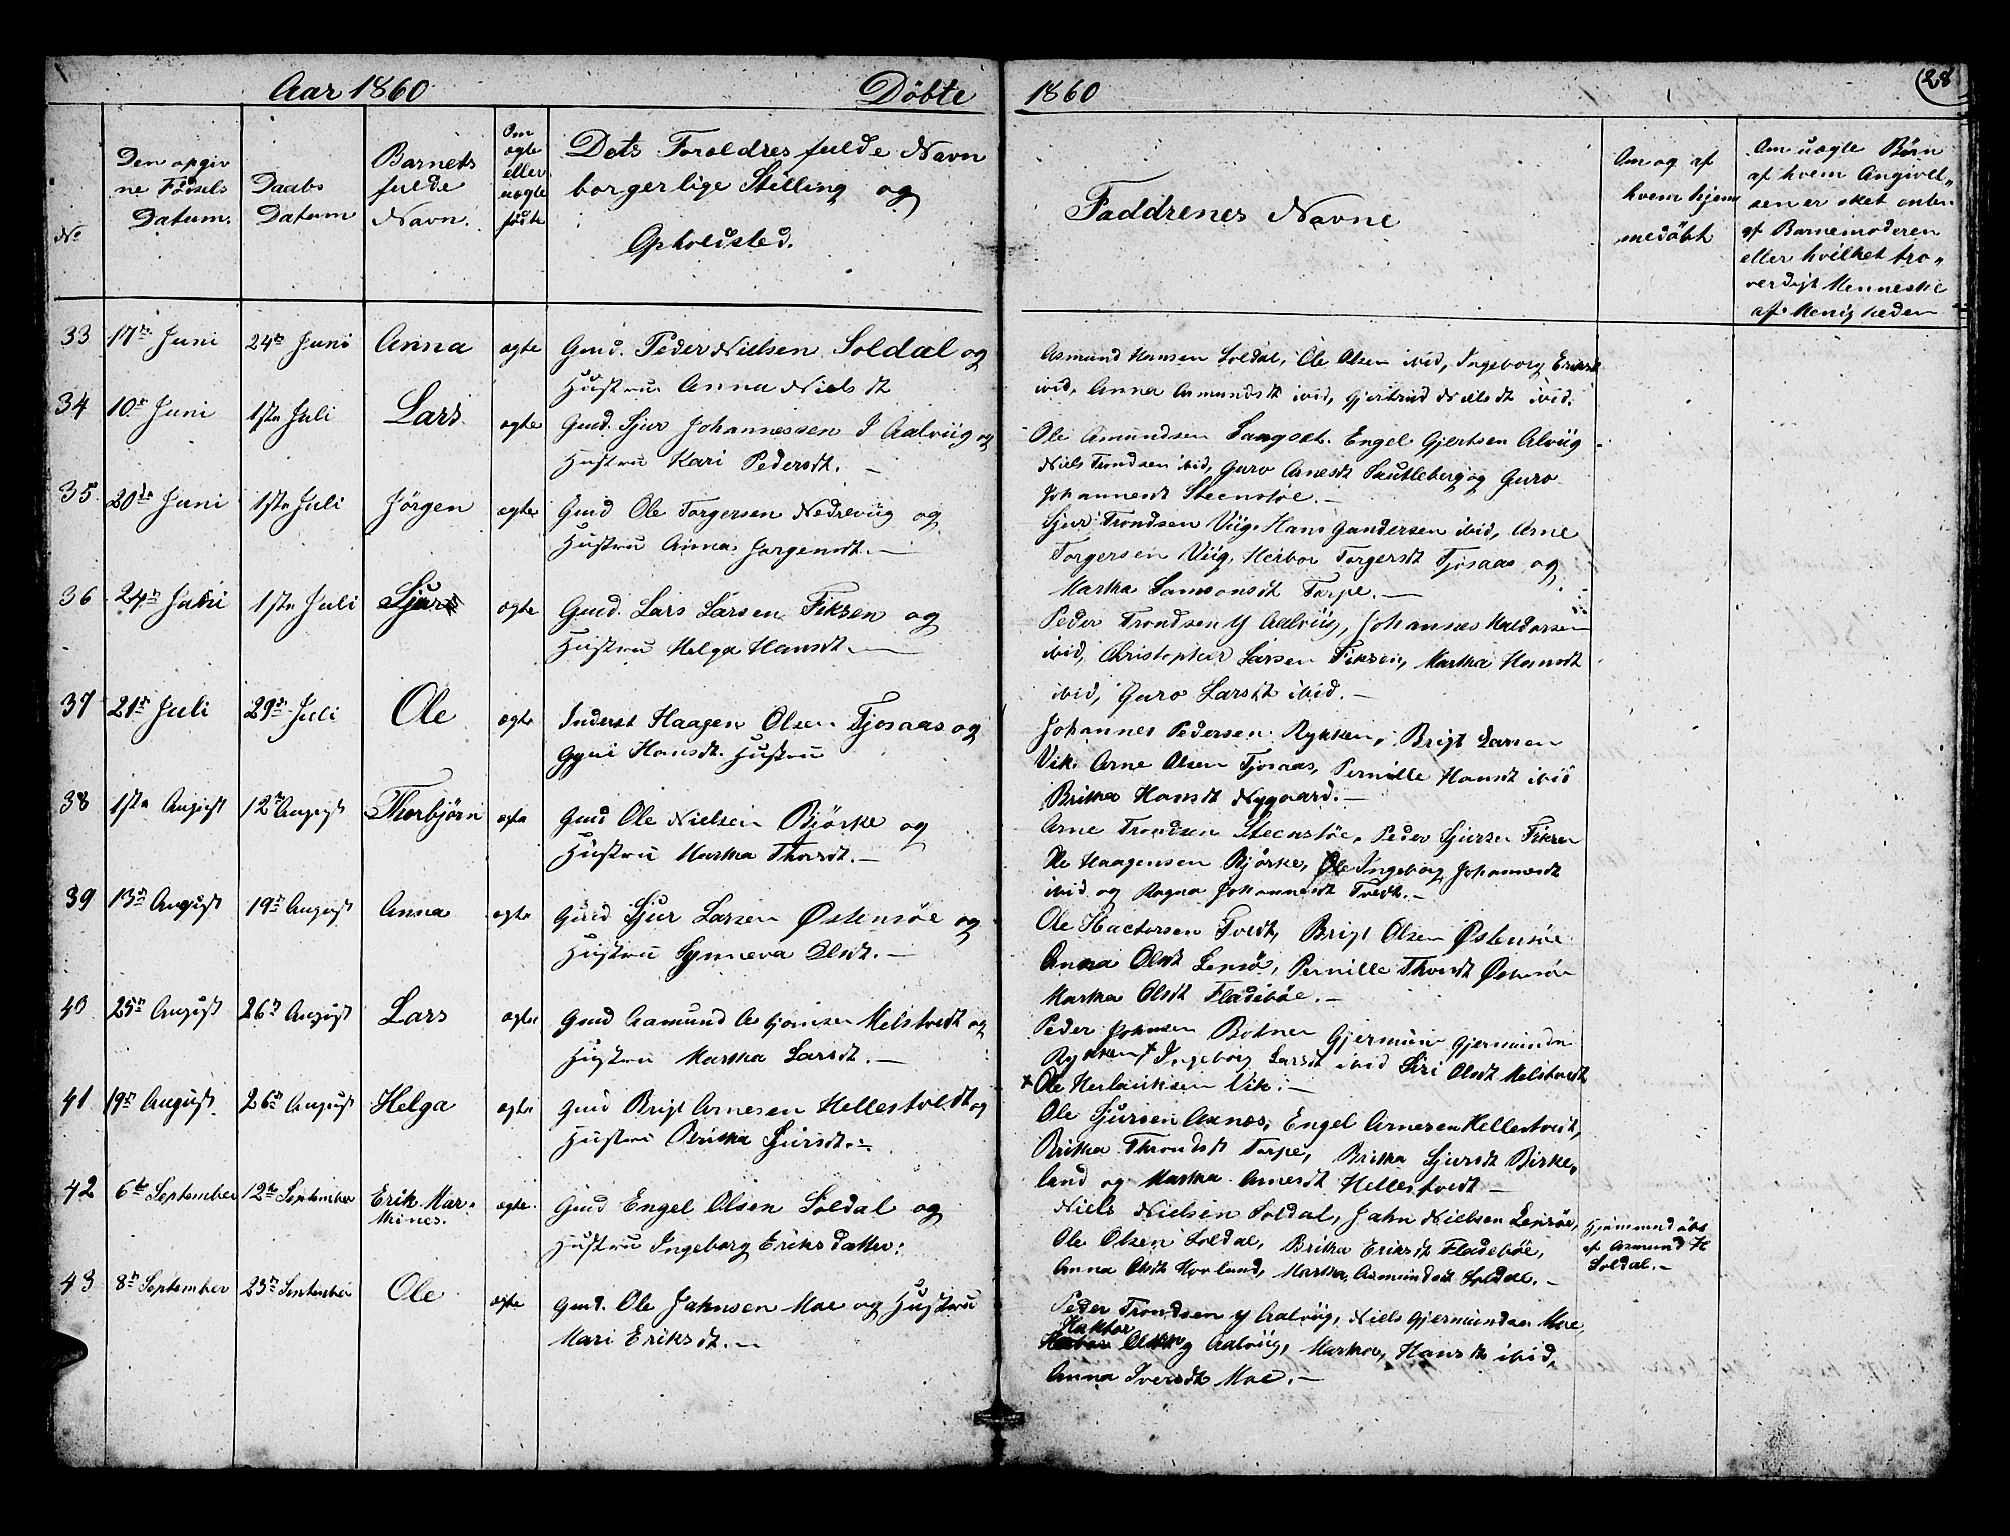 Aar 1860 Döbte
1860
28
No
Den opgiv
ne Fødsels
Datum.
Daabs
Datum
Barnets
fulde
Navn.
Om
ægte
eller
uægte
fødte
Dets Foreldres fulde Navn
borgerlige Stilling og
Opholdsted.
Faddrenes Navne
Om og af
hvem hjem
medöbt
Om uægte Børn
af hvem Angivel„
sen er sket enten
af Barnemoderen
eller hvilket tro„
verdigt Menneske
af Menigheden
33 17de Juni 24de Juni Anna ægte Gmd. Peder Nielsen Soldal og
Hustru Anna Nielsdt
Asmund Hansen Soldal, Ole Olsen ibid, Ingeborg Eriksdt
ibid, Anna Asmundsdt ibid, Gjertrud Nielsdt ibid.
34 10de Juni 1ste Juli Lars ægte Gmd. Sjur Johannessen I Aalviig og
Hustru Kari Pedersdt. —
Ole Amundsen Sangset. Engel Gjertsen Alviig
Niels Trondsen ibid, Guro Arnesdt Sautleberg og Guro
Johannesdt Steenstøe. —
35 20de Juni 1ste Juli Jörgen ægte Gmd Ole Torgersen Nedreviig og
Hustru Anna Jørgensdt. —
Sjur Trondsen Viig. Hans Gundersen ibid, Arne
Torgersen Viig, Herbor Torgersdt Tjosaas og
Martha Samsonsdt Torpe. —
36 24de Juni 1ste Juli Sjur ægte Gmd. Lars Larsen Fiksen og
Hustru Helga Hansdt. —
Peder Trondsen Y Aalviig, Johannes Haldorsen
ibid, Christopher Larsen Fiksen, Martha Hansdt
ibid, Guro Larsdt ibid. —
37 21de Juli 29de Juli Ole ægte Inderst Haagen Olsen Tjosaas og
Gyri Hansdt. Hustru
Johannes Pedersen Rykken, Brigt Larsen
Vik. Arne Olsen Tjosaas, Pernille Hansdt ibid
Britha Hansdt Nygaard. —
38 1ste August 12te August Thorbjörn ægte Gmd Ole Nielsen Björke og
Hustru Martha Thorsdt. —
Arne Trondsen Steenstöe, Peder Sjursen Fiksen
Ole Haagensen Björke, Ingeborg Johannesdt
ibid og Ragna Johannesdt Tvedt. —
39 13de August 19de August Anna ægte Gmd Sjur Larsen Østensøe og
Hustru Synneva Olsdt. —
Ole Hactorsen Tvedt, Brigt Olsen Østensøe
Anna Olsdt Lensö, Pernille Thorsdt Østensøe
Martha Olsdt Fladebøe. —
40 25de August 26de August Lars ægte Gmd Aamund Asbjørnsen Melstvedt og
Hustru Martha Larsdt. —
Peder Johnsen Botnen Gjermund Gjermundsn
Rykken + Ingeborg Larsdt ibid Siri Olsdt Melstvedt
+ Ole Herlauksen Vik. —
41 19de August 26de August Helga ægte Gmd Brigt Arnesen Hellestvedt og
Hustru Britha Sjursdt. —
Ole Sjursen Axnes, Engel Arnesen Hellestvedt,
Britha Throndsdt Torpe, Britha Sjursdt Birke„
land og Martha Arnesdt Hellestvedt —
42 6te September 12te September Erik Mar„
thines. ægte. Gmd Engel Olsen Soldal og
Hustru Ingeborg Eriksdatter.
Niels Nielsen Soldal, Jahn Nielsen Lensöe,
Ole Olsen Soldal, Britha Eriksdt Fladebøe,
Anna Olsdt Hovland, Martha Asmundsdt Soldal. —
Hjemmedöbt
af Asmund H
Soldal. —
43 8de September 23de September Ole ægte Gmd. Ole Jahnsen Moe og Hustru
Mari Eriksdt. —
Peder Trondsen Y Aalviig, Niels Gjermundsen Moe,
Haktor
Olsen Y Aalviig, Martha Hansdt ibid,
Anna Iversdt Moe. —